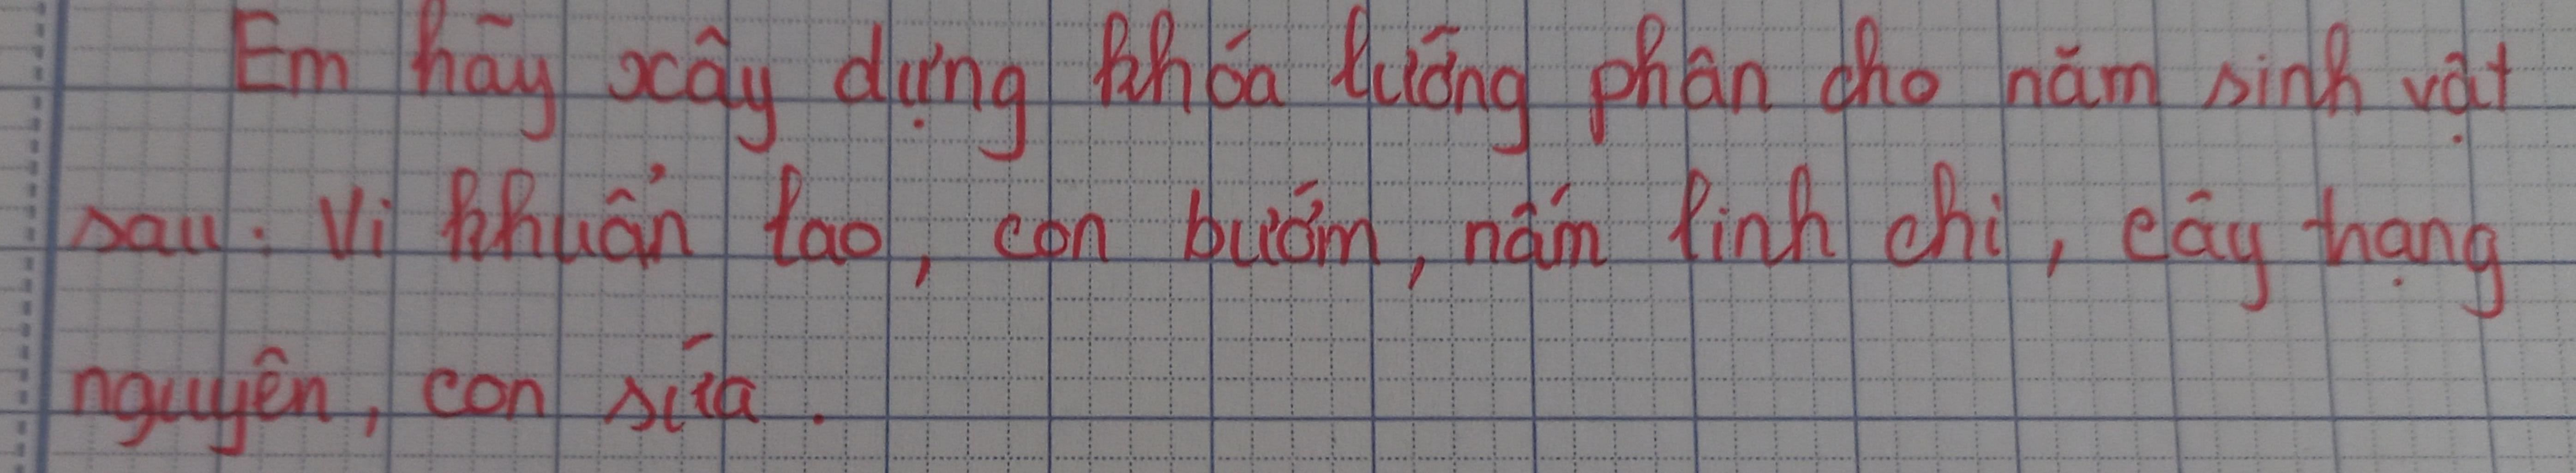 Em hãy xây dựng khóa lưỡng phân cho năm sinh vật
sau: Vi khuẩn lao, con bướm, nấm linh chi, cây trạng
nguyên, con sứa.